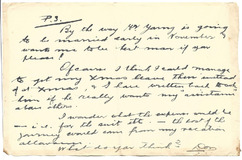 P.S.
By the way Mr Young is going
to be married early in November &
wants me to be best man if you
please!
Of course I think I could manage
to get my Xmas leave then instead
of at Xmas, & I have written back to ask
him if he really wants my assistance
I wonder what the expense would be
– i.e. for the suit etc – the rest of the
journey would come from my vacation
allowance.
What do you think?